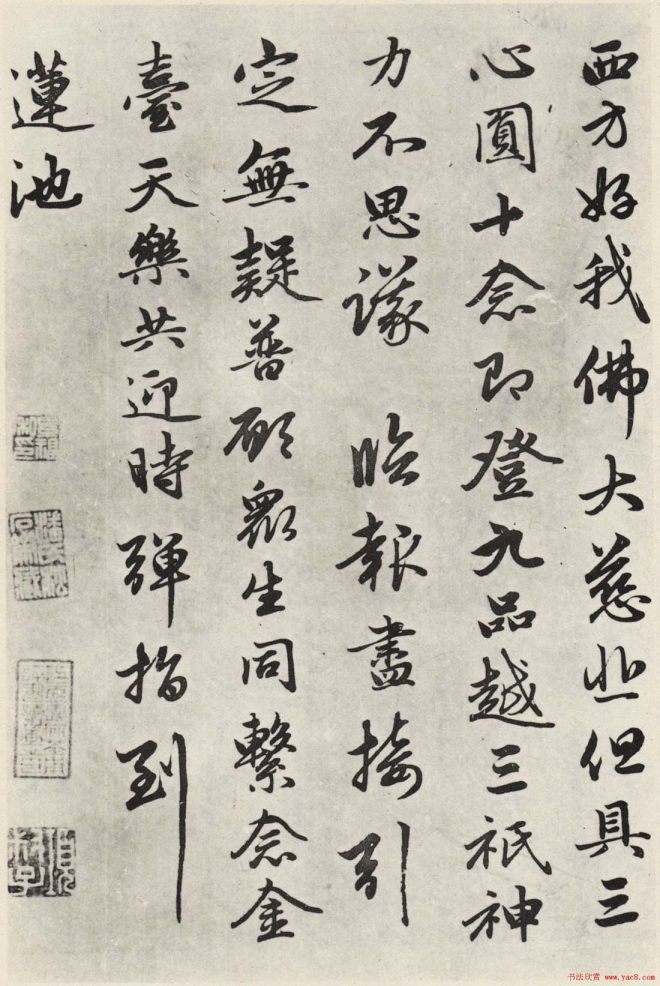 西方好我佛大慈悲但具三
心圓十念即登九品越三祇神
力不思議 臨報盡接引
定無疑普願衆生同繫念金
臺天樂共迎時彈指到
蓮池
书法欣赏 www.yac8.com